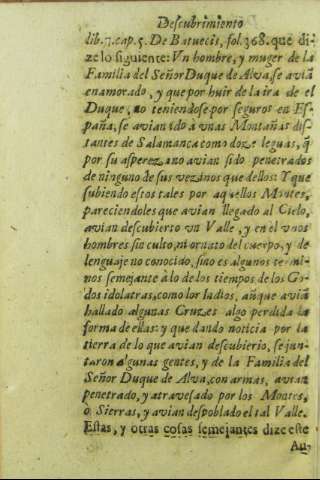 Descubrimiento
lib.7.cap.5. De Batuecis, fol.368. que di-
ze lo siguiente: Vn hombre, y muger de la
Familia del Señor Duque de Alva, se aviã
enamorado, y que por huir de la ira de el
Duque, no teniendose por seguros en Es-
paña, se avian ido à vnas Montañas dis-
tantes de Salamanca como doze leguas, q̃
por su aspereza no avian sido penetrados
de ninguno de sus vezinos que dellos: Y que
subiendo estos tales por aquellos Montes,
pareciendoles que avian llegado al Cielo,
avian descubierto vn Valle, y en el vnos
hombres sin culto, ni ornato del cuerpo, y de
lenguaje no conocido, sino es algunos termi-
nos semejante à lo de los tiempos de los Go-
dos idolatras, como los Indios, aũque aviã
hallado algunas Cruzes algo perdida la
forma de ellas: y que dando noticia por la
tierra de lo que avian descubierto, se jun-
taron algunas gentes, y de la Familia del
Señor Duque de Alva, con armas, avian
penetrado, y atravesado por los Montes,
ò Sierras, y avian despoblado el tal Valle.
Estas, y otras cosas semejantes dize este
Au-